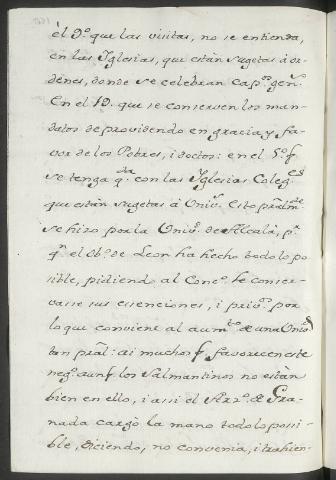 èl 9.º que las visitas, no se entienda,
en las Iglesias, que están sugetas á or-
denes, donde se celebran cap.ºˢ gen.ˢ
En el 10. que se conserven los man-
datos de providendo en gracia, y fa-
vor de los Pobres, i doctos: en el 5.º q̃
se tenga q.ᵗᵃ con las Iglesias Coleg.ᵉˢ
que están sugetas á Univ.ˢ Esto prãlm.ᵗᵉ
se hizo por la Univ.ᵈ de Alcalà, p.ʳ
q.ᵉ el Ob.º de Leon ha hecho todo lo po
sible, pidiendo al Conc.º se conser-
vasse sus essenciones, i priv.ºˢ por
lo que conviene al aum.ᵗº de una Univ.ᵈ
tan prãl: ai muchos q̃ favorecen este
neg.º aunq̃ los Salmantinos no están
bien en ello, i assi el Arz.º de Gra-
nada cargò la mano todo lo possi-
ble, diciendo, no convenia, i trahien-